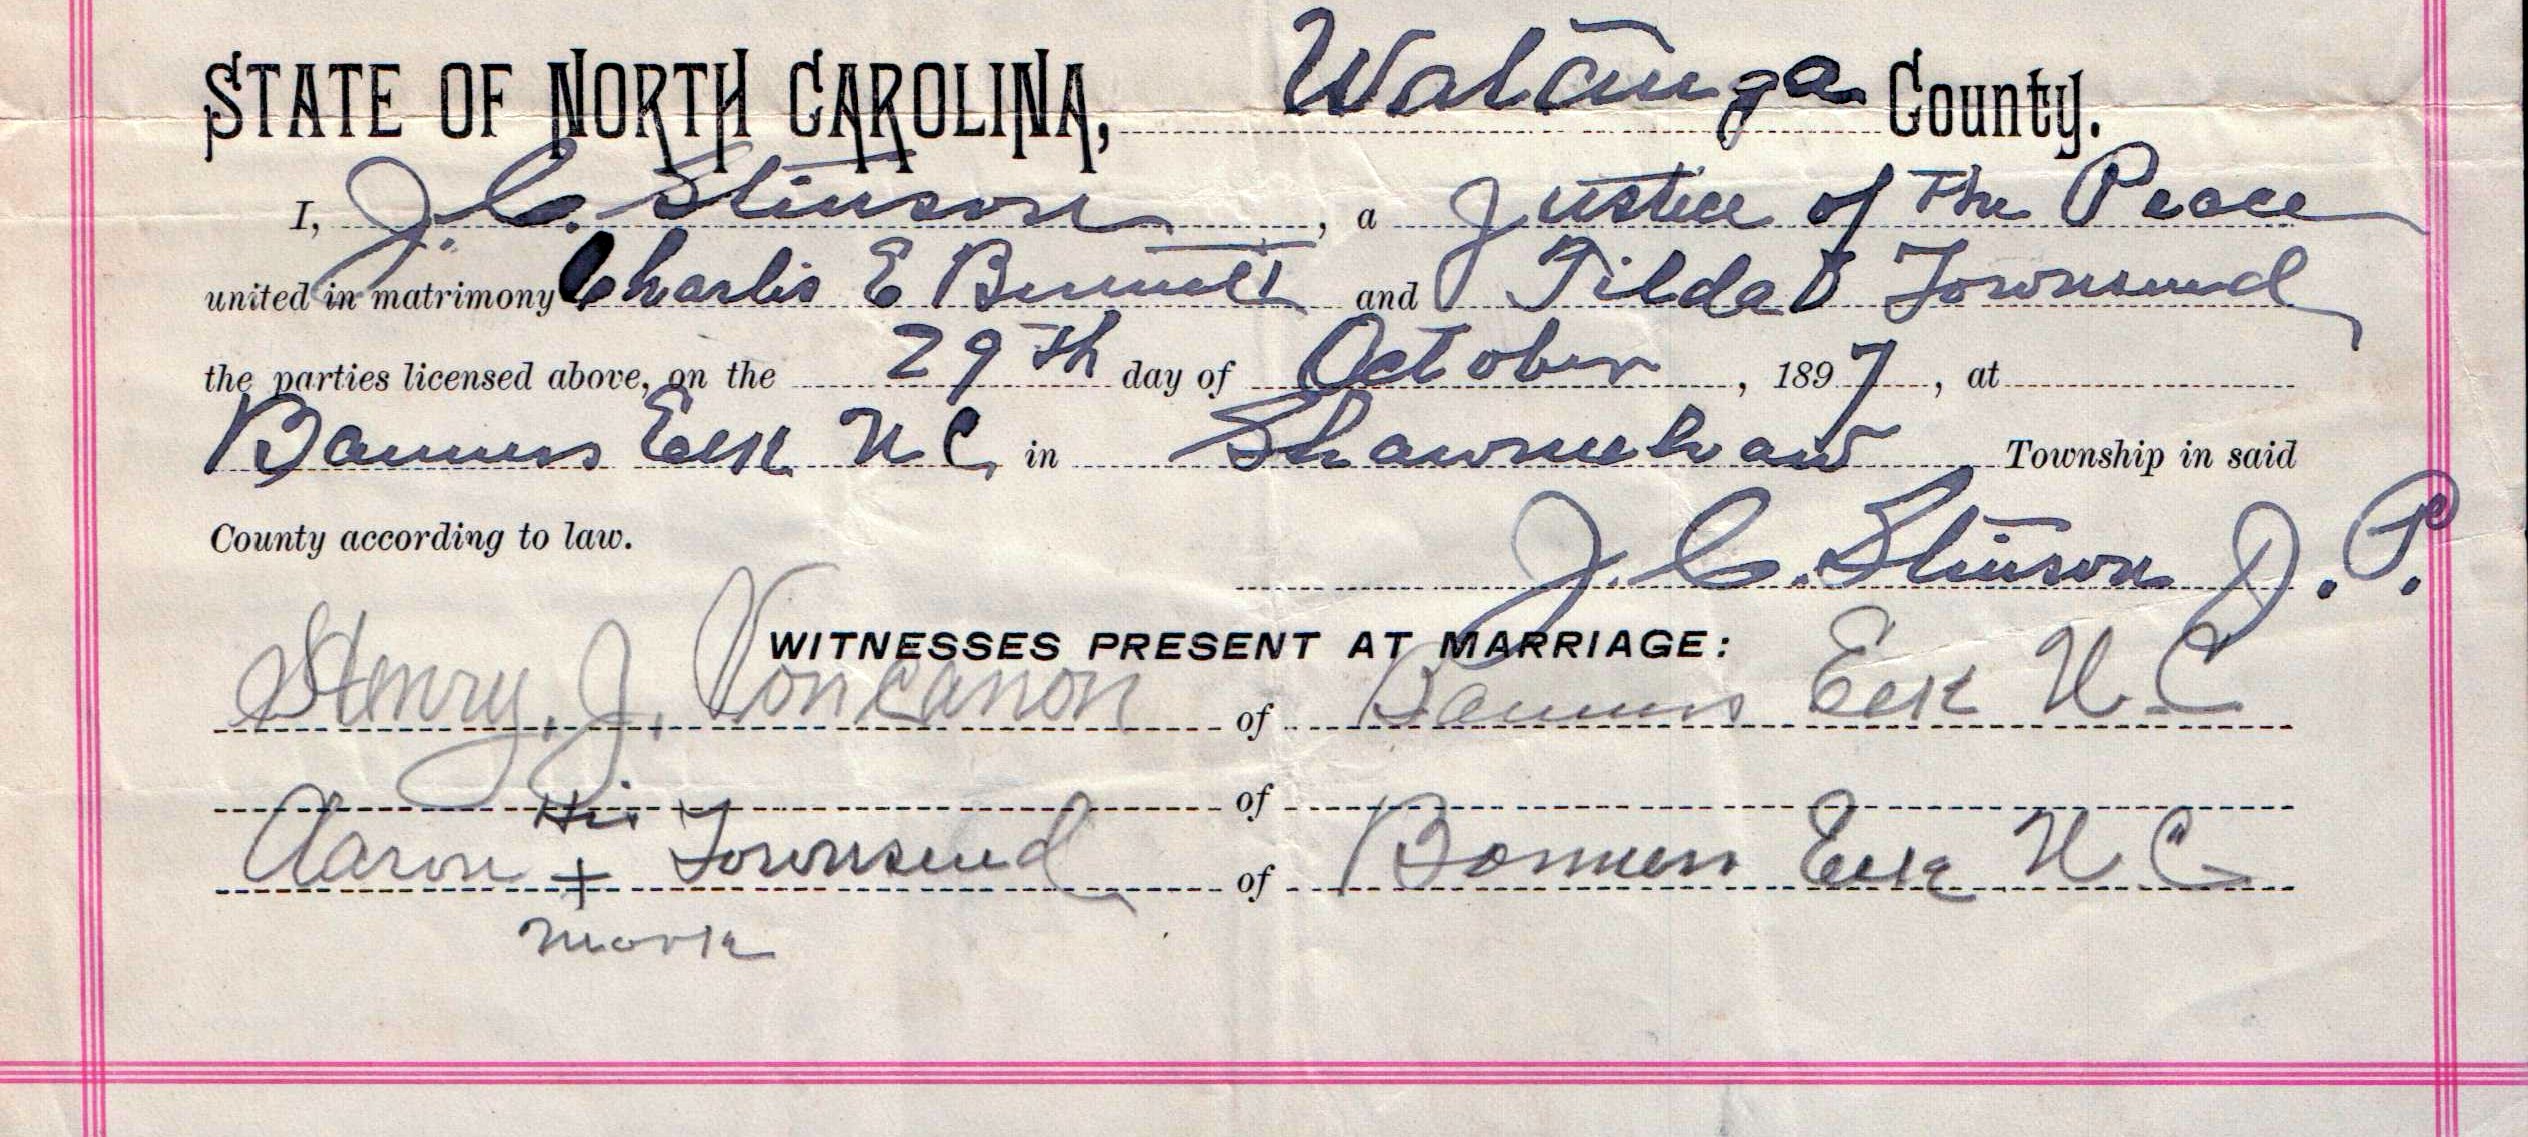 STATE OF NORTH CAROLINA, Watauga County.
I, J. C. Stinson, a Justice of the Peace
united in matrimony Charlis E Bennett and Tilda D Townsend
the parties licensed above, on the 29th day of October, 1897, at
Banners Eelk N C, in Shawneehaw Township in said
County according to law.
J. C. Stinson J. P.
WITNESSES PRESENT AT MARRIAGE:
Henry. J. Voncanon of Banners Eelk N. C
of
Aaron His + Townsend of Banners Eelk N C
mark